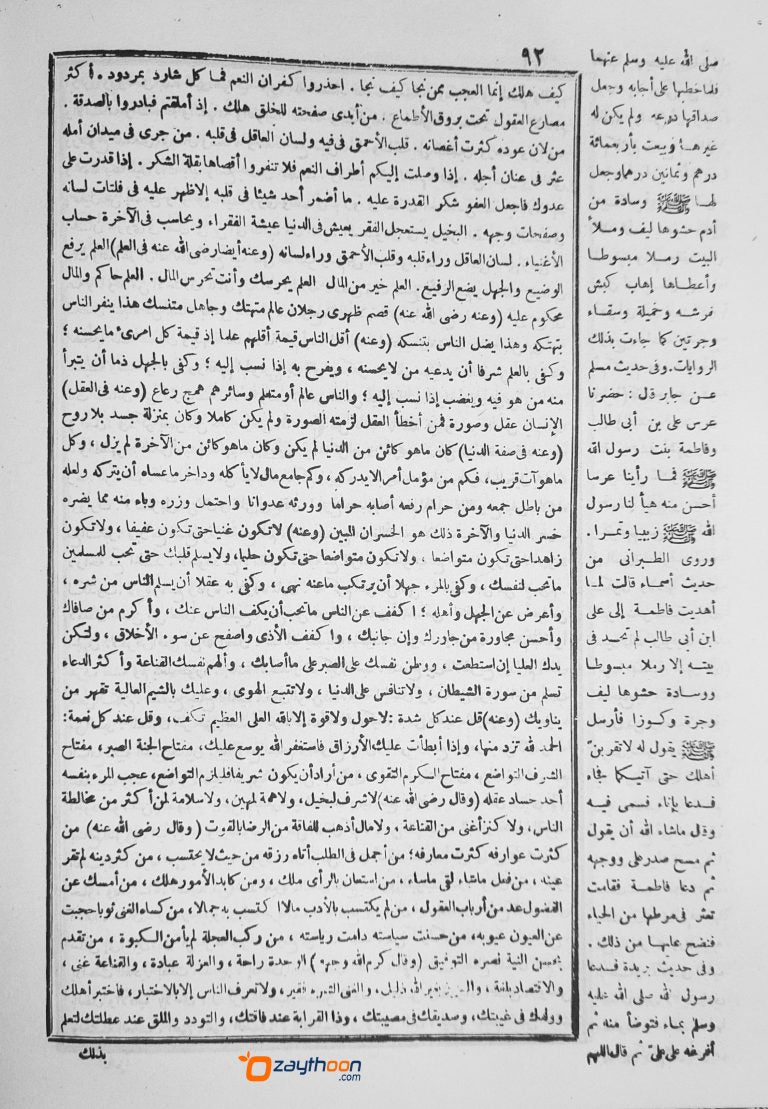 ٩٢
كيف هلك إنما العجب ممن نجا كيف نجا . احذروا كفران النعم فما كل شارد بمردود . أكثر
مصارع العقول تحت بروق الأطماع . من أبدى صفحته للخلق هلك . إذ أملقتم فبادروا بالصدقة .
من لان عوده كثرت أغصانه . قلب الأحمق فى فيه ولسان العاقل فى قلبه . من جرى فى ميدان أمله
عثر فى عنان أجله . إذا وصلت إليكم أطراف النعم فلا تنفروا أقصاها بقلة الشكر . إذا قدرت على
عدوك فاجعل العفو شكر القدرة عليه . ما أضمر أحد شيئا فى قلبه إلا ظهر عليه فى فلتات لسانه
وصفحات وجهه . البخيل يستعجل الفقر يعيش فى الدنيا عيشة الفقراء ، ويحاسب فى الآخرة حساب
الأغنياء . لسان العاقل وراء قلبه وقلب الأحمق وراء لسانه (وعنه أيضا رضى الله عنه فى العلم) العلم يرفع
الوضيع والجهل يضع الرفيع . العلم خير من المال العلم يحرسك وأنت تحرس المال . العلم حاكم والمال
محكوم عليه (وعنه رضى الله عنه) قصم ظهرى رجلان عالم متهتك وجاهل متنسك هذا ينفر الناس
بتهتكه وهذا يضل الناس بتنسكه (وعنه) أقل الناس قيمة أقلهم علما إذ قيمة كل امرىء ما يحسنه ؛
وكفى بالعلم شرفا أن يدعيه من لا يحسنه ، ويفرح به إذا نسب إليه ؛ وكفى بالجهل ذما أن يتبرأ
منه من هو فيه ويغضب إذا نسب إليه ؛ والناس عالم أو متعلم وسائرهم همج رعاع (وعنه فى العقل)
الإنسان عقل وصورة فمن أخطأ العقل لزمته الصورة ولم يكن كاملا وكان بمنزلة جسد بلا روح
(وعنه فى صفة الدنيا) كان ما هو كائن من الدنيا لم يكن وكان ما هو كائن من الآخرة لم يزل ، وكل
ما هو آت قريب ، فكم من مؤمل أمر لا يدركه ، وكم جامع مال لا يأكله وداخر ما عساه أن يتركه ولعله
من باطل جمعه ومن حرام رفعه أصابه حراما وورثه عدوانا واحتمل وزره وباء منه مما يضره
خسر الدنيا والآخرة ذلك هو الخسران المبين (وعنه) لا تكون غنيا حتى تكون عفيفا ، ولا تكون
زاهدا حتى تكون متواضعا ، ولا تكون متواضعا حتى تكون حليما ، ولا يسلم قلبك حتى تحب للمسلمين
ما تحب لنفسك ، وكفى بالمرء جهلا أن يرتكب ما عنه نهى ، وكفى به عقلا أن يسلم الناس من شره ،
وأعرض عن الجهل وأهله ؛ اكفف عن الناس ما تحب أن يكف الناس عنك ، وأكرم من صافاك
وأحسن مجاورة من جاورك وإن جانبك ، واكفف الأذى واصفح عن سوء الأخلاق ، ولتكن
يدك العليا إن استطعت ، ووطن نفسك على الصبر على ما أصابك ، وألهم نفسك القناعة وأكثر الدعاء
تسلم من سورة الشيطان ، ولا تنافس على الدنيا ، ولا تتبع الهوى ، وعليك بالشيم العالية تقهر من
يناويك (وعنه) قل عند كل شدة : لا حول ولا قوة إلا بالله العلى العظيم تكف ، وقل عند كل نعمة :
الحمد لله تزد منها ، وإذا أبطأت عليك الأرزاق فاستغفر الله يوسع عليك ، مفتاح الجنة الصبر ، مفتاح
الشرف التواضع ، مفتاح الكرم التقوى ، من أراد أن يكون شريفا فليلزم التواضع ، عجب المرء بنفسه
أحد حساد عقله (وقال رضى الله عنه) لا شرف لبخيل ، ولا همة لمهين ، ولا سلامة لمن أكثر من مخالطة
الناس ، ولا كنز أغنى من القناعة ، ولا مال أذهب للفاقة من الرضا بالقوت (وقال رضى الله عنه) من
كثرت عوارفه كثرت معارفه ؛ من أجمل فى الطلب أتاه رزقه من حيث لا يحتسب ، من كثر دينه لم تقر
عينه ، من فعل ما شاء لقى ما ساء ، من استعان بالرأى ملك ، ومن كابد الأمور هلك ، من أمسك عن
الفضول عد من أرباب العقول ، من لم يكتسب بالأدب مالا اكتسب به جمالا ، من كساه الغنى ثوبا حجبت
عن العيون عيوبه ، من حسنت سياسته دامت رياسته ، من ركب العجلة لم يأمن الكبوة ، من تقدم
بحسن النية نصره التوفيق (وقال كرم الله وجهه) الوحدة راحة ، والعزلة عبادة ، والقناعة غنى ،
والاقتصاد بلغة ، والعزيز بغير الله ذليل ، والغنى الشره فقير ، ولا تعرف الناس إلا بالاختبار ، فاختبر أهلك
وولدك فى غيبتك ، وصديقك فى مصيبتك ، وذا القرابة عند فاقتك ، والتودد والملق عند عطلتك لتعلم
بذلك
صلى الله عليه وسلم عنهما
فلما خطبها على أجابه وجعل
صداقها درعه ولم يكن له
غيرها وبيعت بأربعمائة
درهم وثمانين درهما وجعل
لها ﷺ وسادة من
أدم حشوها ليف وملأ
البيت رملا مبسوطا
وأعطاها إهاب كبش
فرشه وخميلة وسقاء
وجرتين كما جاءت بذلك
الروايات . وفى حديث مسلم
عن جابر قال : حضرنا
عرس على بن أبى طالب
وفاطمة بنت رسول الله
ﷺ فما رأينا عرسا
أحسن منه هيأ لنا رسول
الله ﷺ زبيبا وتمرا .
وروى الطبرانى من
حديث أسماء قالت لما
أهديت فاطمة إلى على
ابن أبى طالب لم نجد فى
بيته إلا رملا مبسوطا
ووسادة حشوها ليف
وجرة وكوزا فأرسل
ﷺ يقول له لا تقربن
أهلك حتى آتيكما فجاء
فدعا بإناء فسمى فيه
وقال ماشاء الله أن يقول
ثم مسح صدر على ووجهه
ثم دعا فاطمة فقامت
تعثر فى مرطها من الحياء
فنضح عليها من ذلك .
وفى حديث بريدة فدعا
رسول الله صلى الله عليه
وسلم بماء فتوضأ منه ثم
أفرغه على علىّ ثم قال اللهم
Ozaythoon
.com